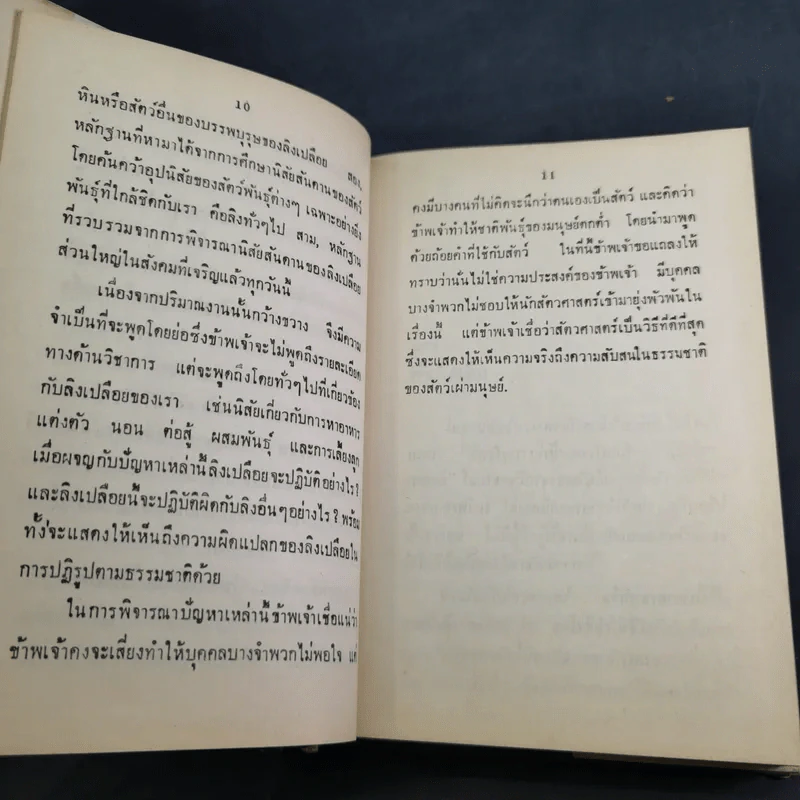 10
หินหรือสัตว์อื่นของบรรพบุรุษของลิงเปลือย สอง,
หลักฐานที่หามาได้จากการศึกษานิสัยสันดานของสัตว์
โดยค้นคว้าอุปนิสัยของสัตว์พันธุ์ต่างๆ เฉพาะอย่างยิ่ง
พันธุ์ที่ใกล้ชิดกับเรา คือลิงทั่วๆไป สาม, หลักฐาน
ที่รวบรวมจากการพิจารณานิสัยสันดานของลิงเปลือย
ส่วนใหญ่ในสังคมที่เจริญแล้วทุกวันนี้
เนื่องจากปริมาณงานนั้นกว้างขวาง จึงมีความ
จำเป็นที่จะพูดโดยย่อซึ่งข้าพเจ้าจะไม่พูดถึงรายละเอียด
ทางด้านวิชาการ แต่จะพูดถึงโดยทั่วๆไปที่เกี่ยวข้อง
กับลิงเปลือยของเรา เช่นนิสัยเกี่ยวกับการหาอาหาร
แต่งตัว นอน ต่อสู้ ผสมพันธุ์ และการเลี้ยงลูก
เมื่อผจญกับปัญหาเหล่านี้ลิงเปลือยจะปฏิบัติอย่างไร?
และลิงเปลือยนี้จะปฏิบัติผิดกับลิงอื่นๆอย่างไร? พร้อม
ทั้งจะแสดงให้เห็นถึงความผิดแปลกของลิงเปลือยใน
การปฏิรูปตามธรรมชาติด้วย
ในการพิจารณาปัญหาเหล่านี้ข้าพเจ้าเชื่อแน่ว่า
ข้าพเจ้าคงจะเสี่ยงทำให้บุคคลบางจำพวกไม่พอใจ แต่
11
คงมีบางคนที่ไม่คิดจะนึกว่าตนเองเป็นสัตว์ และคิดว่า
ข้าพเจ้าทำให้ชาติพันธุ์ของมนุษย์ตกต่ำ โดยนำมาพูด
ด้วยถ้อยคำที่ใช้กับสัตว์ ในที่นี้ข้าพเจ้าขอแถลงให้
ทราบว่านั่นไม่ใช่ความประสงค์ของข้าพเจ้า มีบุคคล
บางจำพวกไม่ชอบให้นักสัตวศาสตร์เข้ามายุ่งพัวพันใน
เรื่องนี้ แต่ข้าพเจ้าเชื่อว่าสัตวศาสตร์เป็นวิธีที่ดีที่สุด
ซึ่งจะแสดงให้เห็นความจริงถึงความสับสนในธรรมชาติ
ของสัตว์เผ่ามนุษย์.